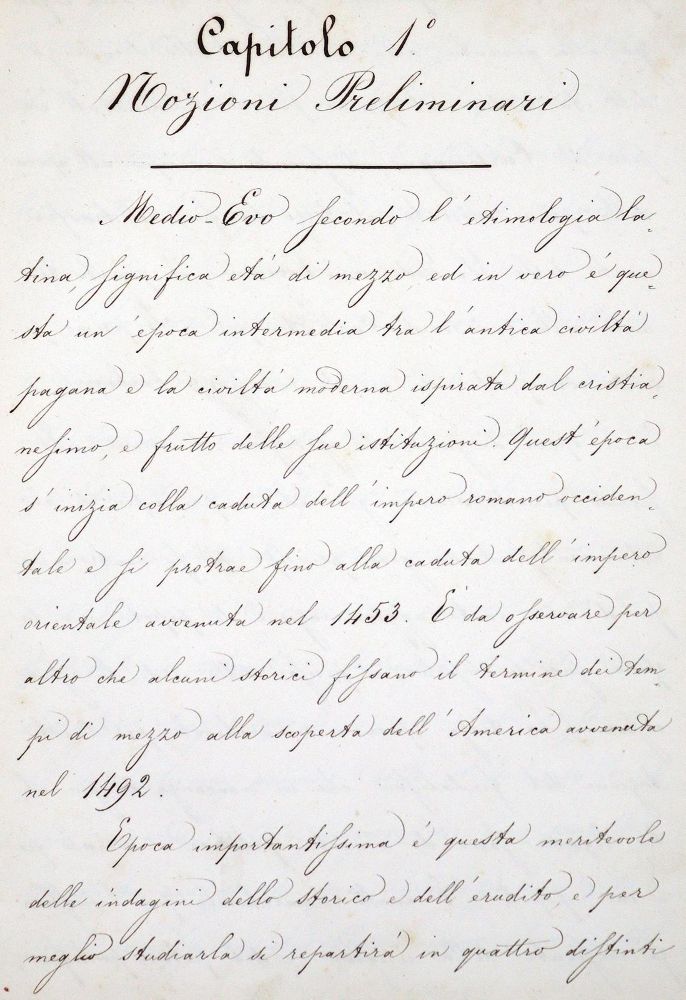 Capitolo 1º
Nozioni Preliminari
Medio-Evo secondo l'etimologia la-
tina, significa etá di mezzo ed in vero é que-
sta un'epoca intermedia tra l'antica civiltá
pagana e la civiltá moderna ispirata dal cristia-
nesimo, e frutto delle sue istituzioni. Quest'epoca
s'inizia colla caduta dell'impero romano occiden-
tale e si protrae fino alla caduta dell'impero
orientale avvenuta nel 1453. É da osservare per
altro che alcuni storici fissano il termine dei tem-
pi di mezzo alla scoperta dell'America avvenuta
nel 1492.
Epoca importantissima é questa meritevole
delle indagini dello storico e dell'erudito, e per
meglio studiarla si repartirá in quattro distinti